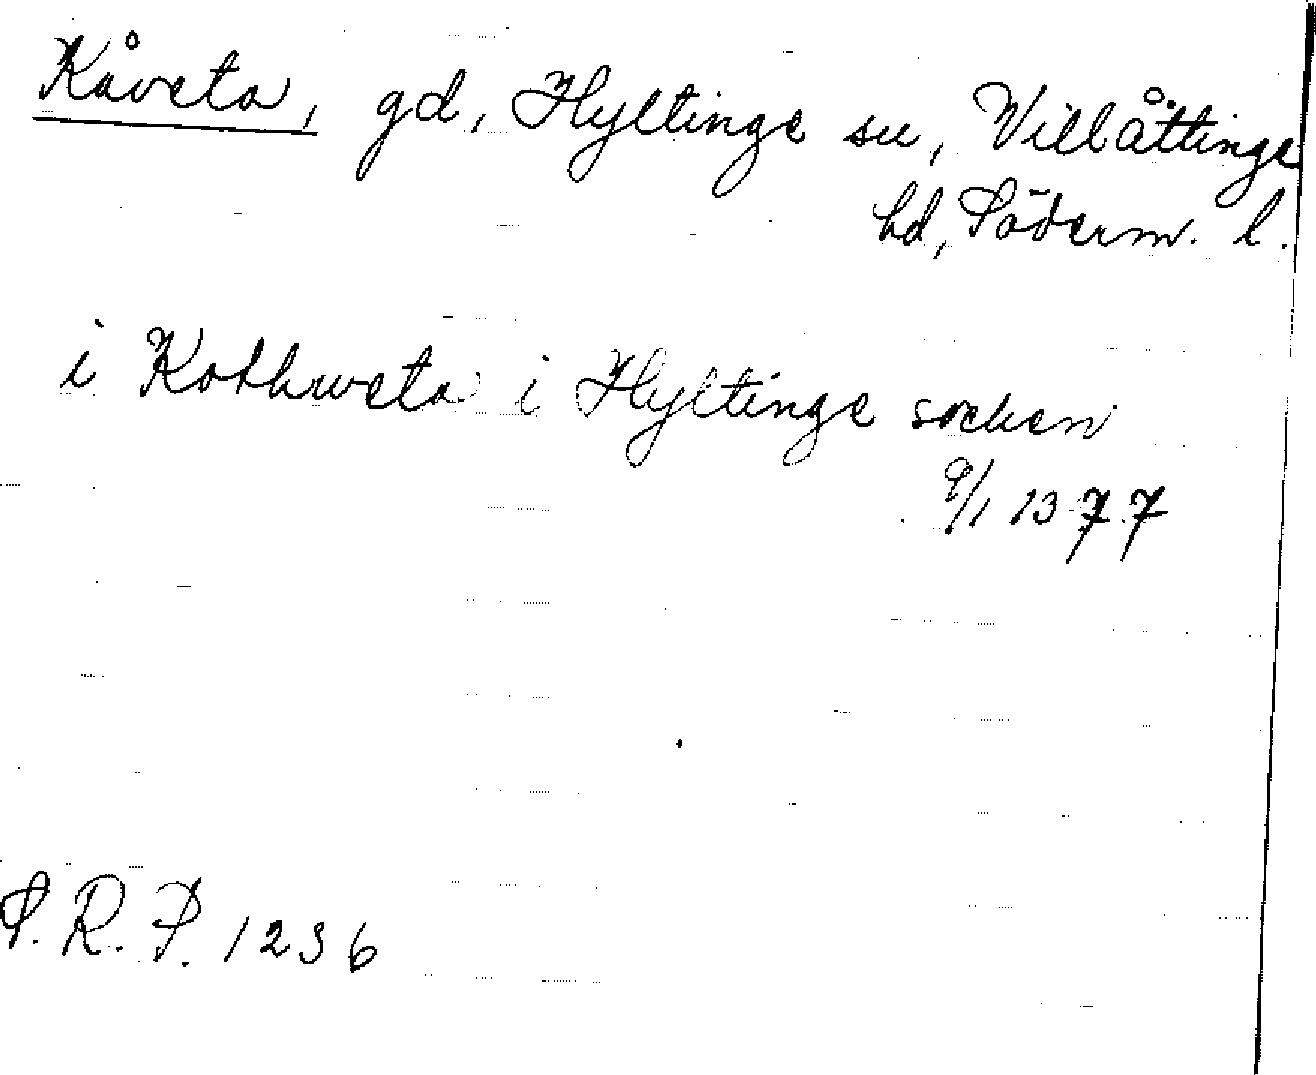 Kåveta, gd, Hyltinge sn, Villåttinge
hd, Söderm. l.
i Kothweta i Hyltinge socken
9/1 1377
S. R. P. 1236